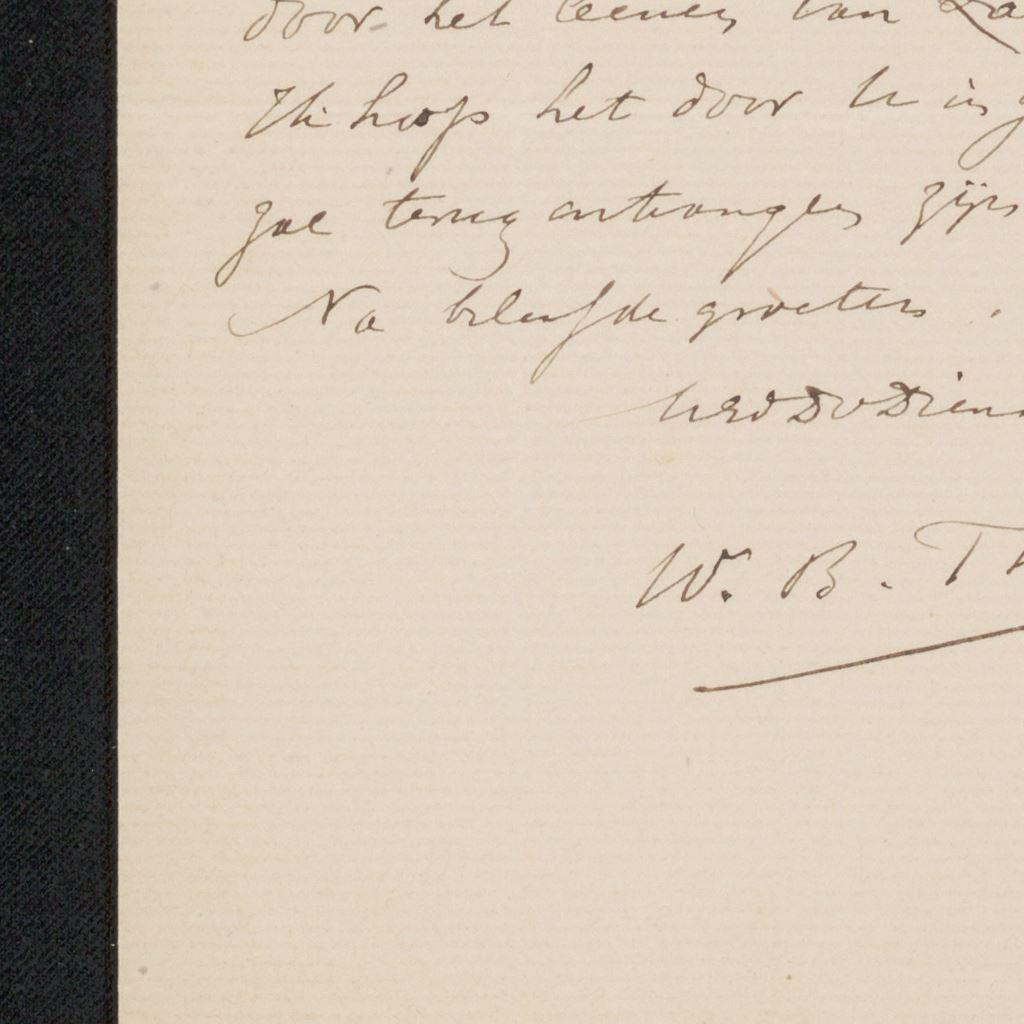 door het leenen van
Ik hoop het door U in
zal terug ontvangen zijn
Na beleefde groeten.
UEd Dv Dien
W. B. Th